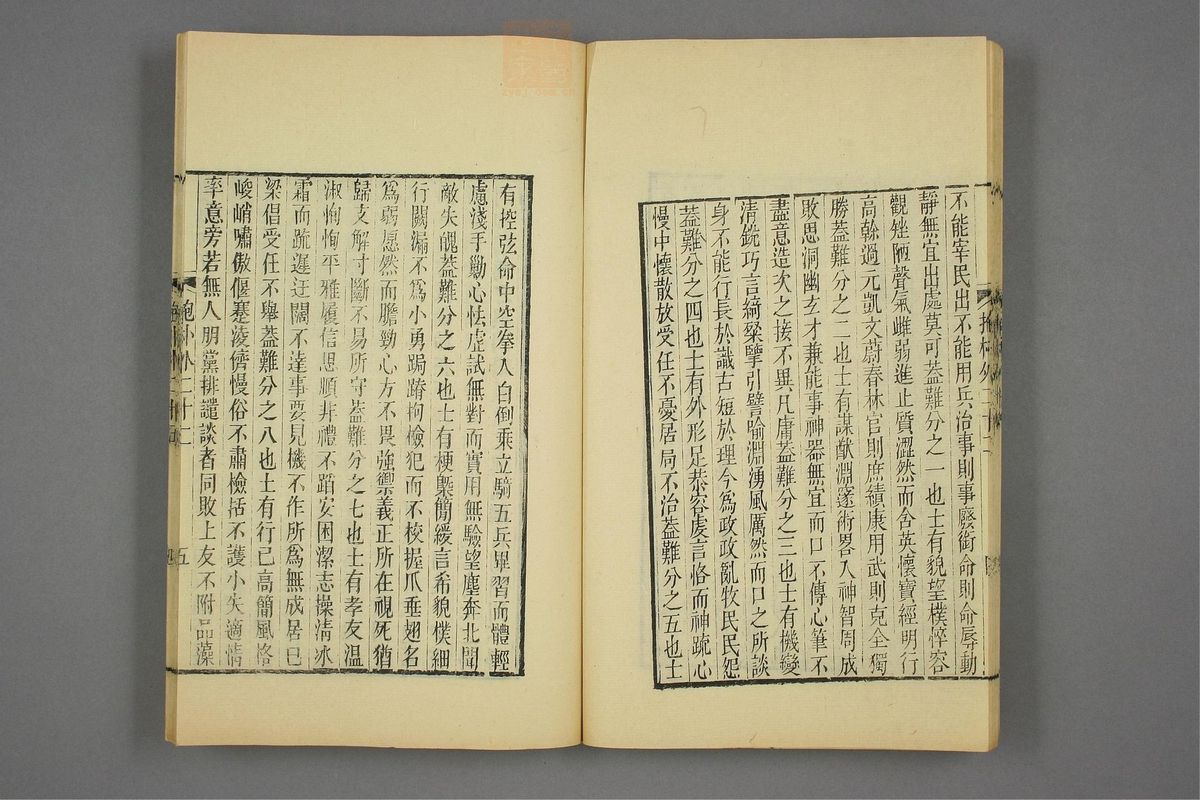 不能宰民出不能用兵治事則事廢銜命則命辱動
靜無宜出處莫可蓋難分之一也士有貌望樸悴容
觀矬陋聲氣雌弱進止質澀然而含英懷寶經明行
高榦過元凱文蔚春林官則庶績康用武則克全獨
勝蓋難分之二也士有謀猷淵邃術畧入神智周成
敗思洞幽玄才兼能事神器無宜而口不傳心筆不
盡意造次之接不異凡庸蓋難分之三也士有機變
清銳巧言綺粲擥引譬喻淵湧風厲然而口之所談
身不能行長於識古短於理今為政政亂牧民民怨
蓋難分之四也士有外形足恭容虔言恪而神疏心
慢中懷散放受任不憂居局不治蓋難分之五也士
有控弦命中空拳入白倒乘立騎五兵畢習而體輕
慮淺手勦心怯虛試無對而實用無驗望塵奔北聞
敵失魄蓋難分之六也士有梗槩簡緩言希貌樸細
行闕漏不為小勇跼蹐拘檢犯而不校握爪垂翅名
為弱愿然而膽勁心方不畏強禦義正所在視死猶
歸支解寸斷不易所守蓋難分之七也士有孝友溫
淑恂恂平雅履信思順非禮不蹈安困潔志操清冰
霜而疏遲迂闊不達事要見機不作所為無成居己
梁倡受任不舉蓋難分之八也士有行己高簡風格
峻峭嘯傲偃蹇淩儕慢俗不肅檢括不護小失適情
率意旁若無人朋黨排譴談者同敗上友不附品藻
抱朴外二十二
五